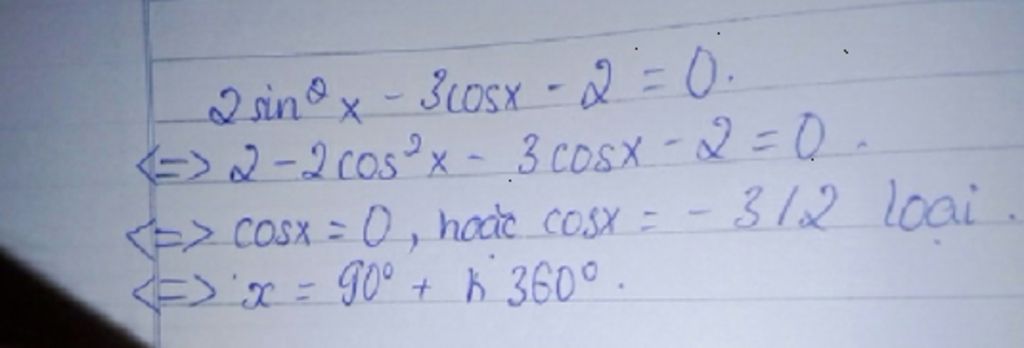 2 sin² x - 3cosx - 2 = 0.
<=> 2 - 2cos²x - 3cosx - 2 = 0.
<=> cosx = 0, hoặc cosx = - 3/2 loại.
<=> x = 90° + k 360°.